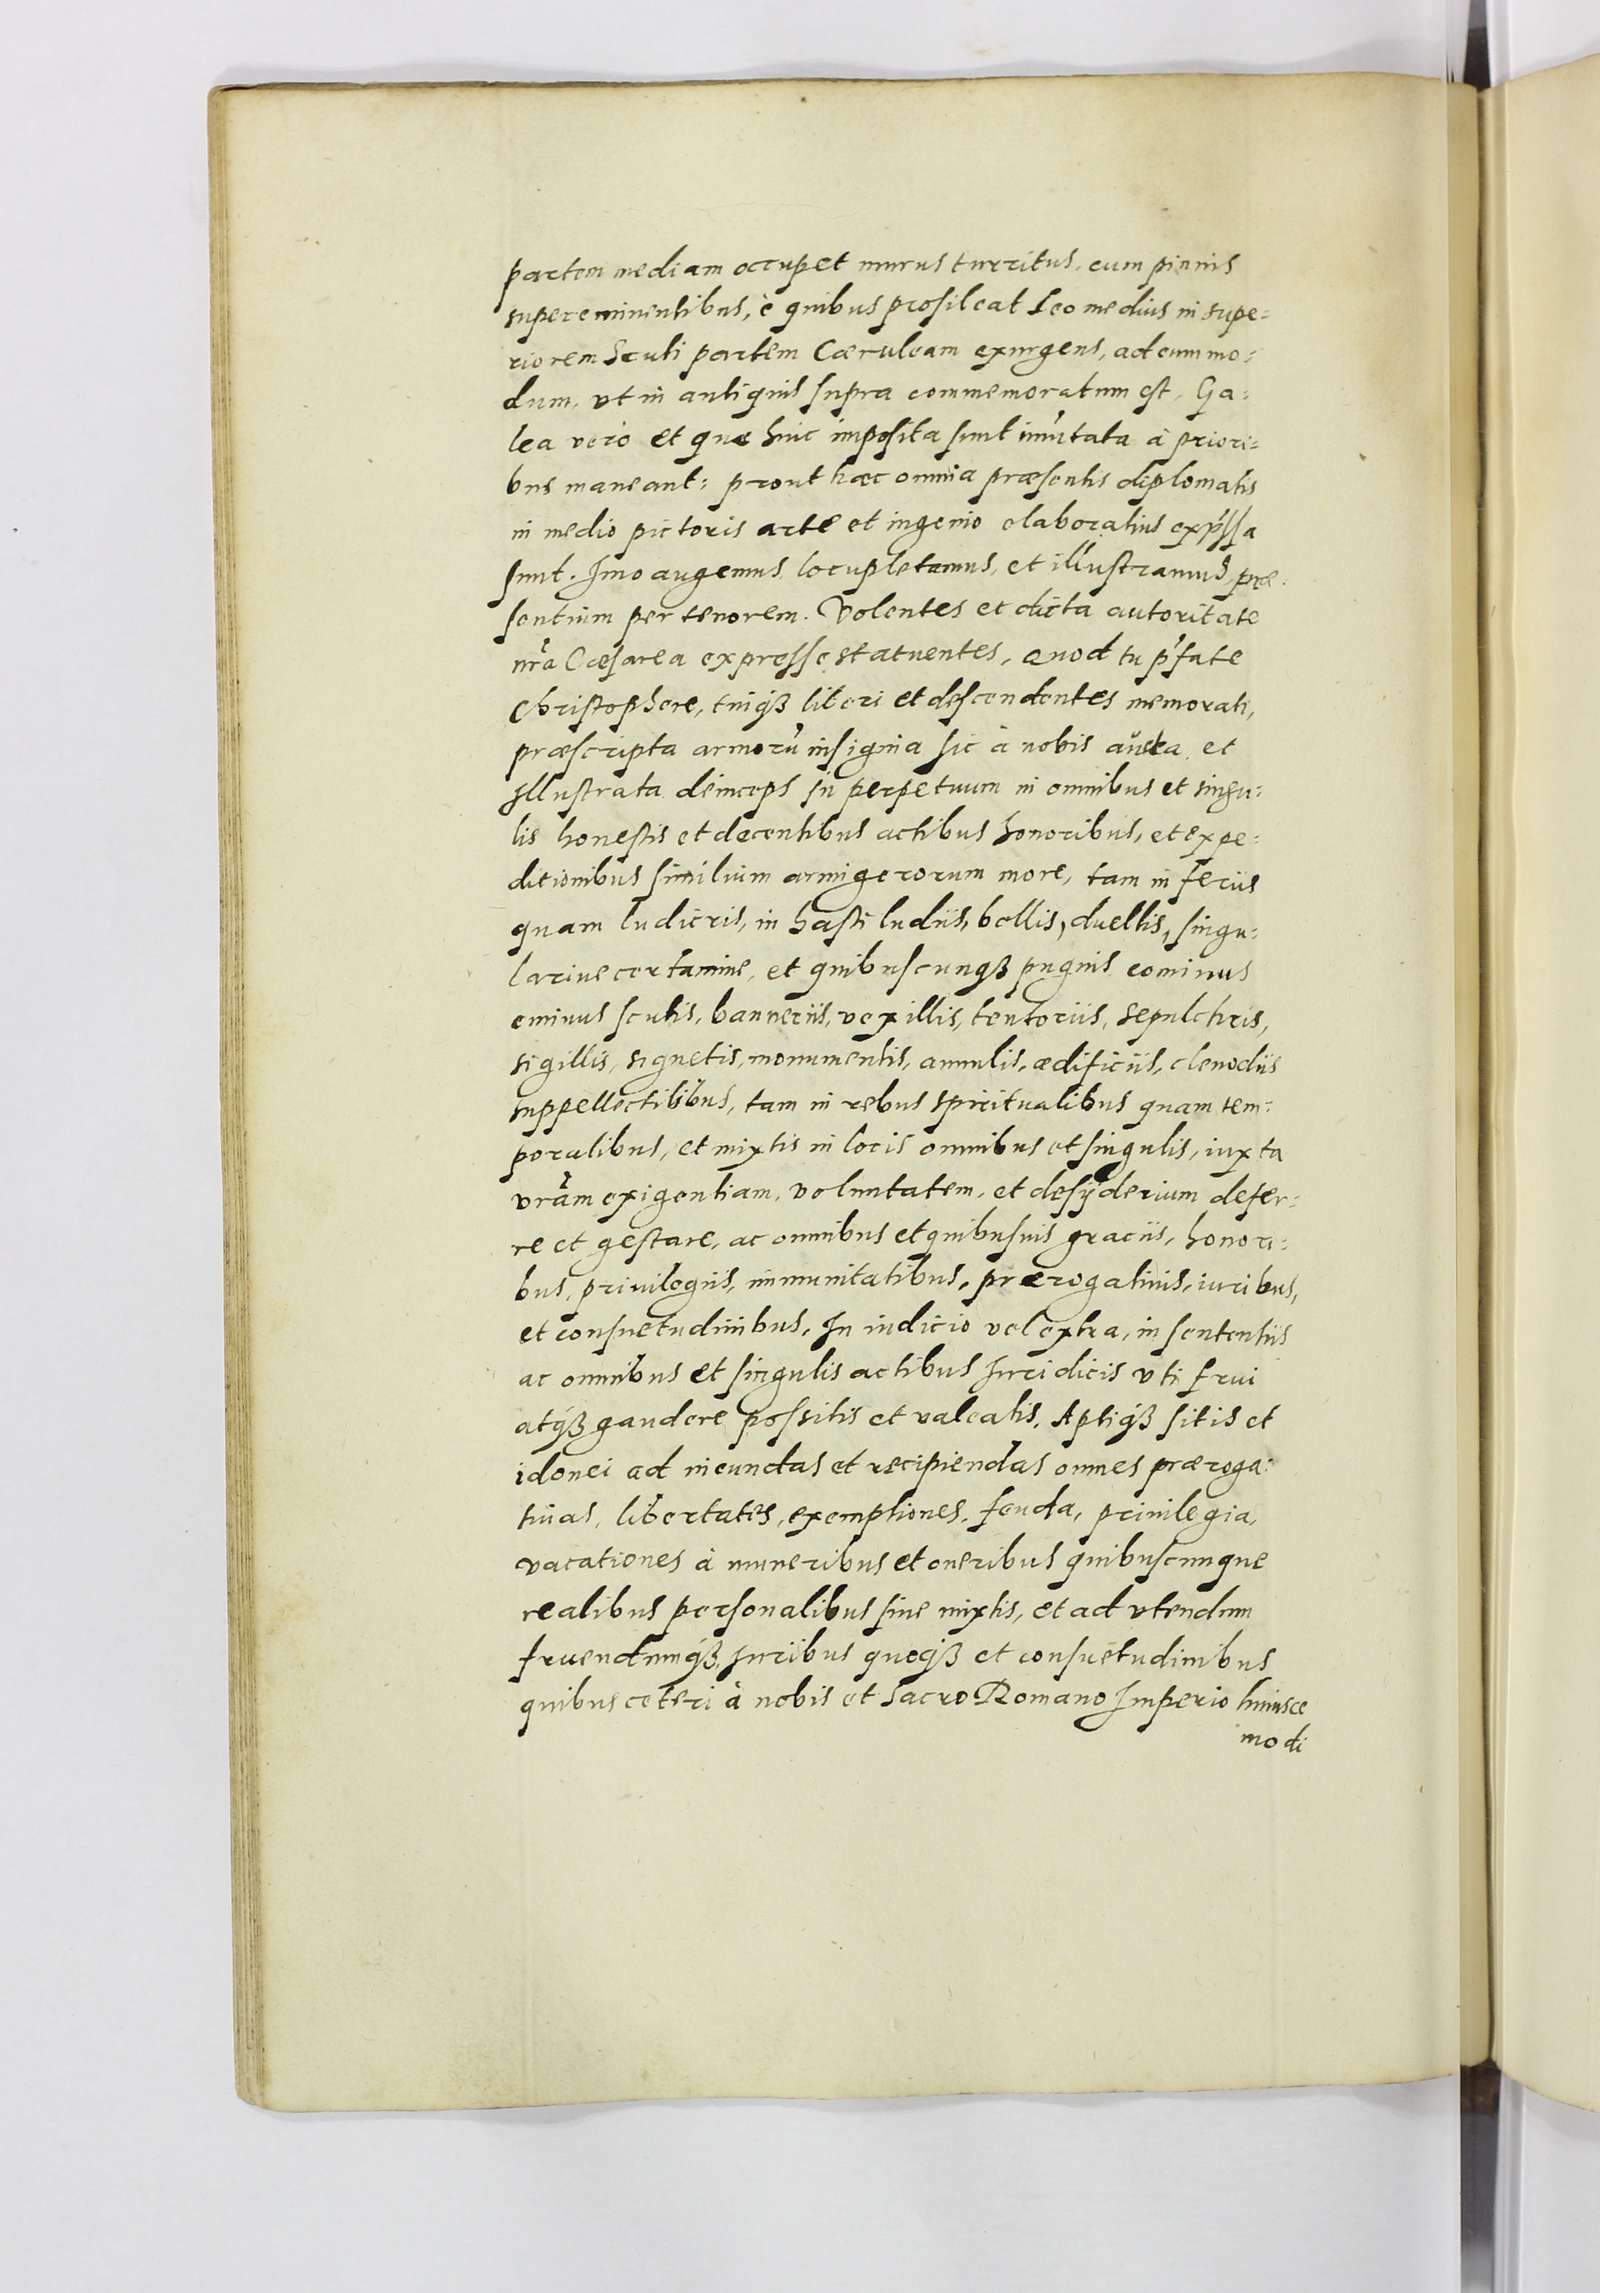 partem mediam occupet murus turritus, cum pinnis
supereminentibus, è quibus prosileat Leo medius in supe-
riorem Scuti partem Cæruleam exurgens, ad eum mo-
dum, vt in antiquis supra commemoratum est, Ga-
lea vero et quæ huic imposita sunt im̃utata à priori-
bus maneant: prout hæc omnia præsentis diplomatis
in medio pictoris arte et ingenio elaboratius exp̃ssa
sunt. Imo augemus, locupletamus, et illustramus, præ-
sentium per tenorem. Volentes et dicta autoritate
nr̃a Cæsarea expresse statuentes, Quod tu p̃fate
Christophere, tuiqȝ liberi et descendentes memorati,
præscripta armorũ insignia sic à nobis aucta et
Illustrata deinceps In perpetuum in omnibus et singu-
lis honestis et decentibus actibus honoribus, et expe-
ditionibus similium armigerorum more, tam in seriis
quam ludicris, in hasti ludiis, bellis, duellis, singu-
lariue certamine, et quibuscunqȝ pugnis cominus
eminus scutis, banneriis, vexillis, tentoriis, sepulchris,
sigillis, signetis, monumentis, annulis, ædificiis, clenodiis
suppellectilibus, tam in rebus spiritualibus quam tem-
poralibus, et mixtis in locis omnibus et singulis, iuxta
vr̃am exigentiam, voluntatem, et desyderium defer-
re et gestare, ac omnibus et quibusuis graciis, honori-
bus, priuilegiis, immunitatibus, prærogatiuis, iuribus,
et consuetudinibus, In iudicio vel extra, in sententiis
ac omnibus et singulis actibus Iuridicis vti frui
atqȝ gaudere possitis et valeatis, Aptiqȝ sitis et
idonei ad ineundas et recipiendas omnes præroga-
tiuas, libertates, exemptiones, feuda, priuilegia,
vacationes à muneribus et oneribus quibuscunque
realibus personalibus siue mixtis, et ad vtendum
fruendumqȝ, Iuribus quoqȝ et consuetudinibus
quibus ceteri à nobis et Sacro Romano Imperio huiusce
modi